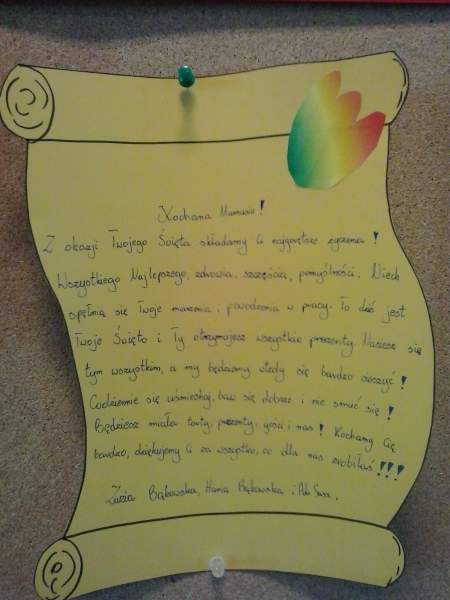 Kochana Mamusiu!
Z okazji Twojego Święta składamy Ci najgorętsze życzenia!
Wszystkiego Najlepszego, zdrowia, szczęścia, pomyślności. Niech
spełnią się Twoje marzenia i powodzenia w pracy. To dziś jest
Twoje Święto i Ty otrzymujesz wszystkie prezenty. Naciesz się
tym wszystkim, a my będziemy wtedy się bardzo cieszyć!
Codziennie się uśmiechaj, baw się dobrze i nie smuć się!
Będziesz miała torty, prezenty, gości i nas! Kochamy Cię
bardzo, dziękujemy Ci za wszystko, co dla nas zrobiłaś!!!
Zuzia Bąkowska, Hania Bąkowska i